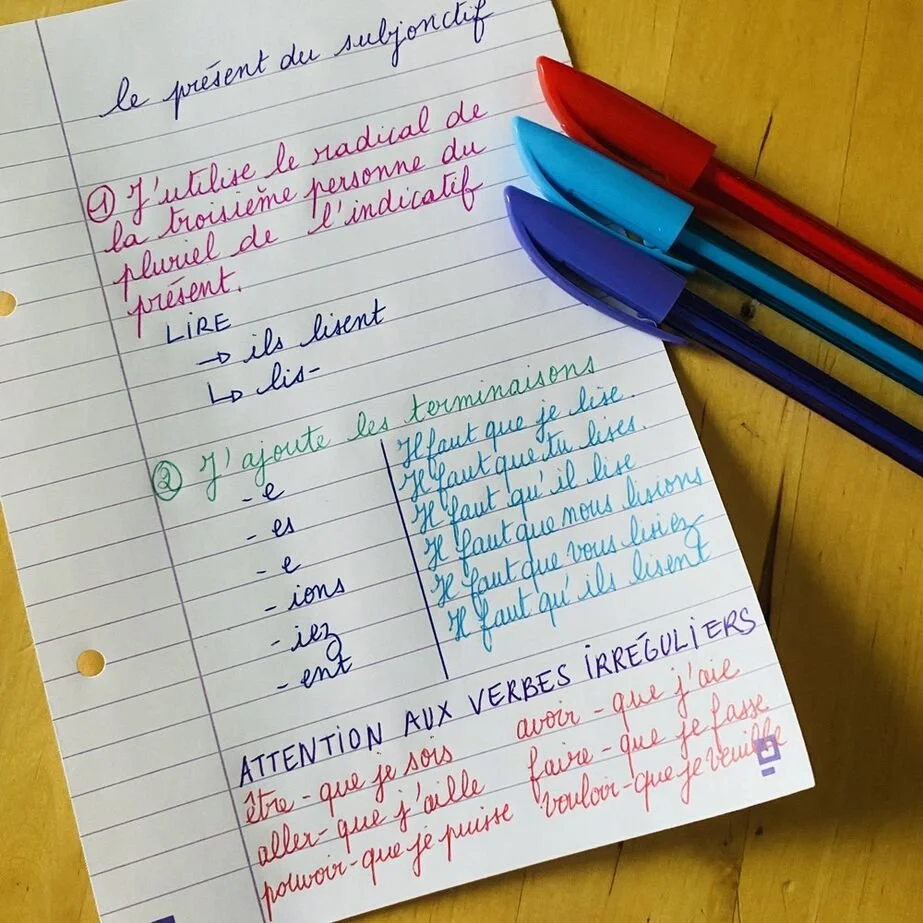 le présent du subjonctif
① J'utilise le radical de
la troisième personne du
pluriel de l'indicatif
présent.
LIRE
→ ils lisent
↳ lis-
② J'ajoute les terminaisons
- e
- es
- e
- ions
- iez
- ent
Il faut que je lise.
Il faut que tu lises.
Il faut qu'il lise
Il faut que nous lisions
Il faut que vous lisiez
Il faut qu'ils lisent
ATTENTION AUX VERBES IRRÉGULIERS
être - que je sois avoir - que j'aie
aller - que j'aille faire - que je fasse
pouvoir - que je puisse vouloir - que je veuille